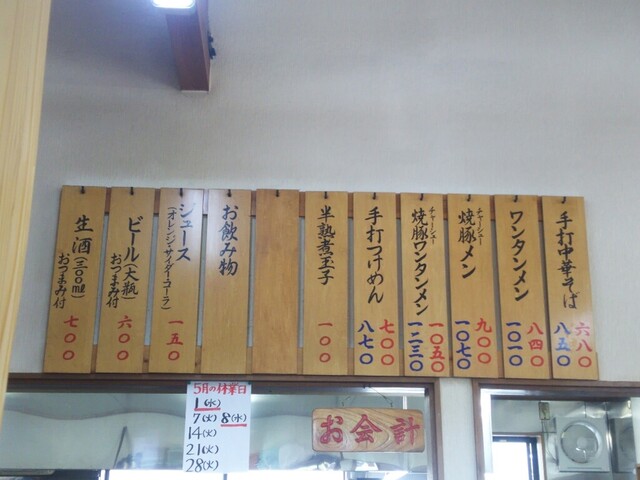 手打中華そば
六八〇
八五〇
ワンタンメン
八四〇
一〇一〇
チャーシュー
焼豚メン
九〇〇
一〇七〇
チャーシュー
焼豚ワンタンメン
一〇五〇
一二三〇
手打つけめん
七〇〇
八七〇
半熟煮玉子
一〇〇
お飲み物
ジュース
(オレンジ・サイダー・コーラ)
一五〇
ビール(大瓶)
おつまみ付
六〇〇
生酒(三〇〇ml)
おつまみ付
七〇〇
5月の休業日
1(水)
7(火) 8(水)
14(火)
21(火)
28(火)
お会計